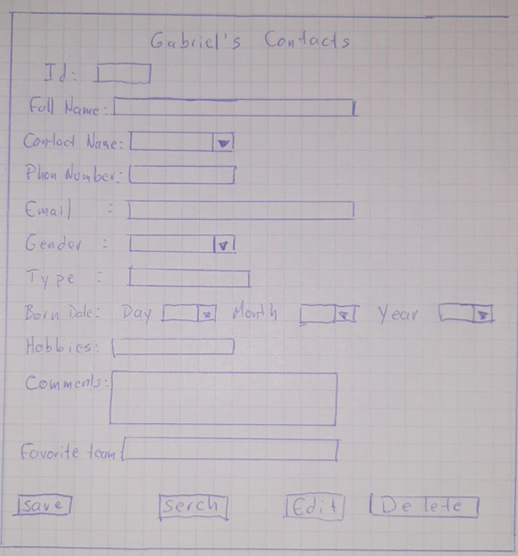 Gabriel's Contacts
Id:
Full Name:
Contact Name:
Phon Number:
Email :
Gender :
Type :
Born Date: Day Month Year
Hobbies:
Comments:
Favorite team
Save Serch Edit Delete